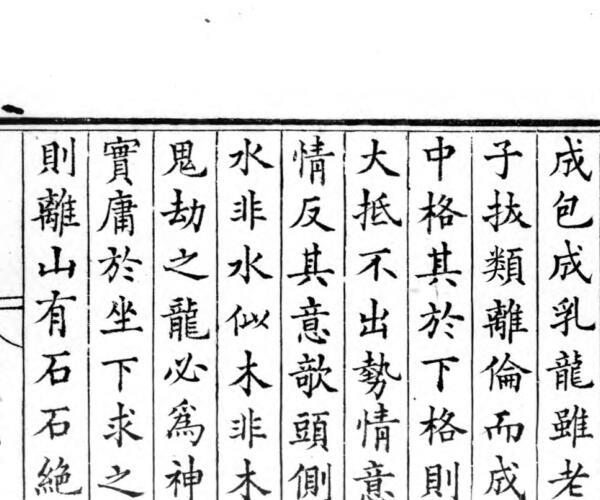 成包成乳龍雖老
子抜類離倫而成
中格其於下格則
大抵不出勢情意
情反其意欹頭側
水非水似木非木
鬼劫之龍必為神
實庸於坐下求之
則離山有石石絶